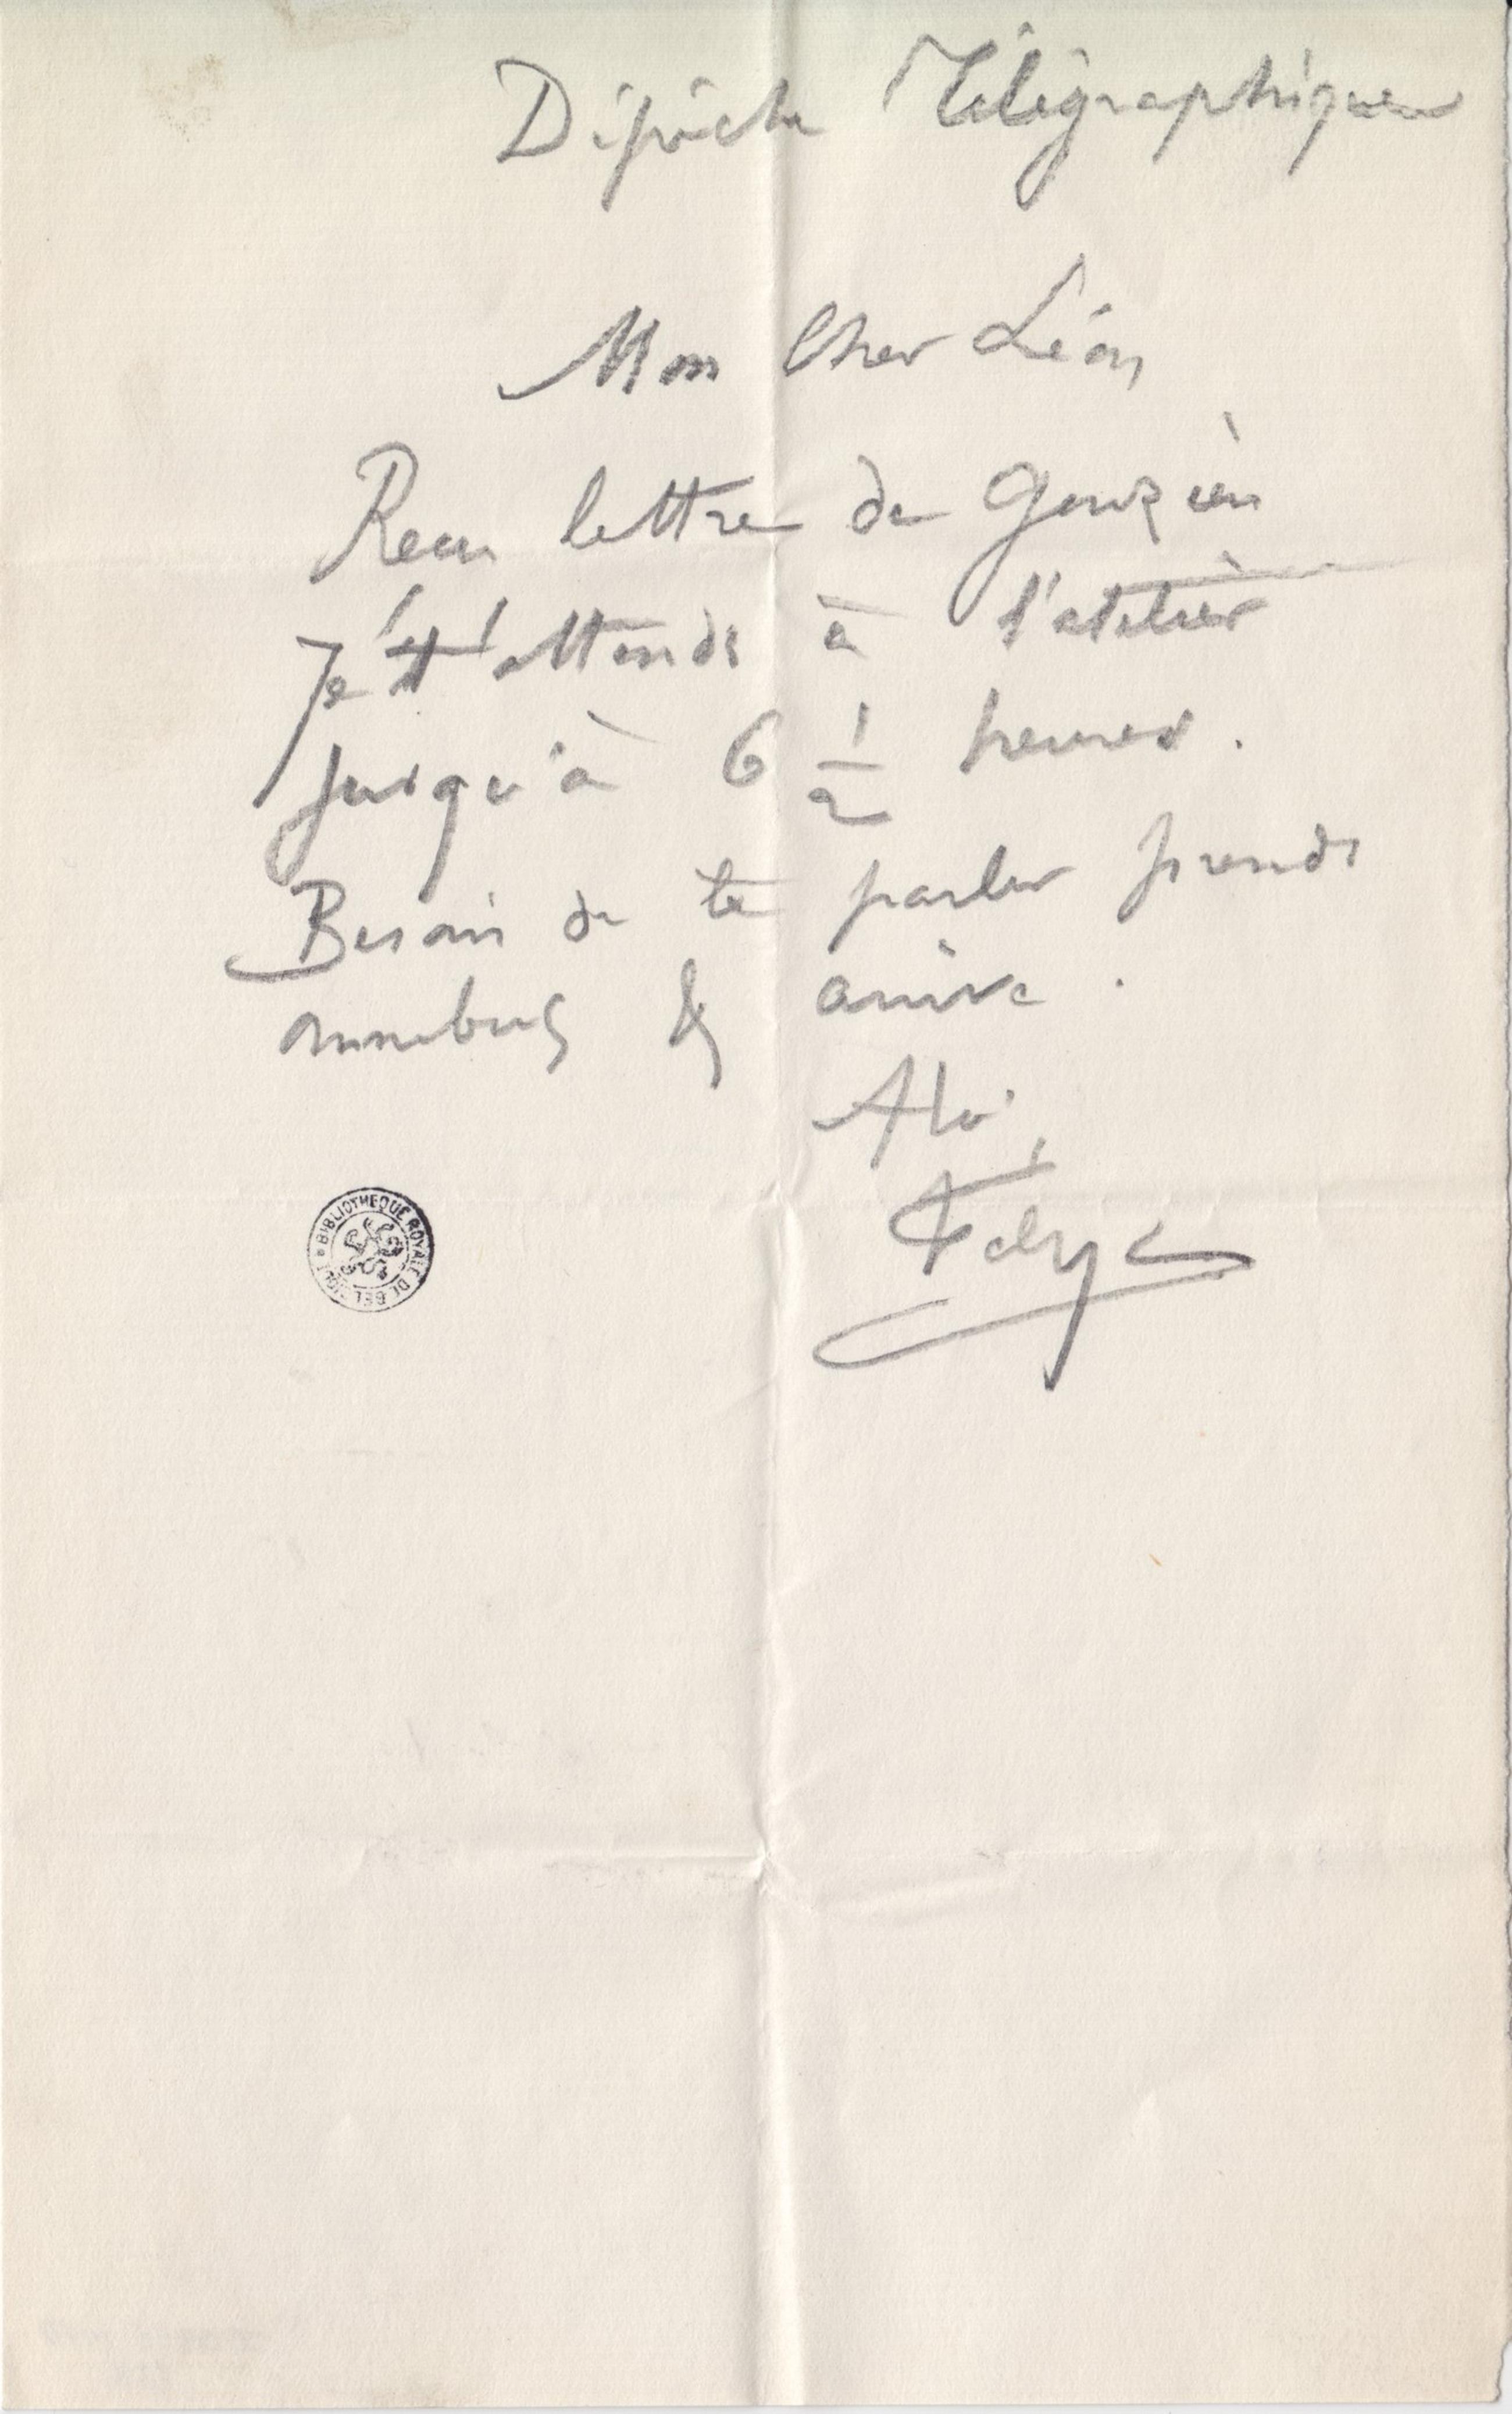 Dépêche Télégraphique
Mon Cher Léon
Recu lettre de Gouzien
Je t'attends à l'atelier
jusqu'à 6 1/2 heures.
Besoin de te parler prends
omnibus & arrive.
A toi,
Fély
BIBLIOTHEQUE ROYALE DE BELGIQUE